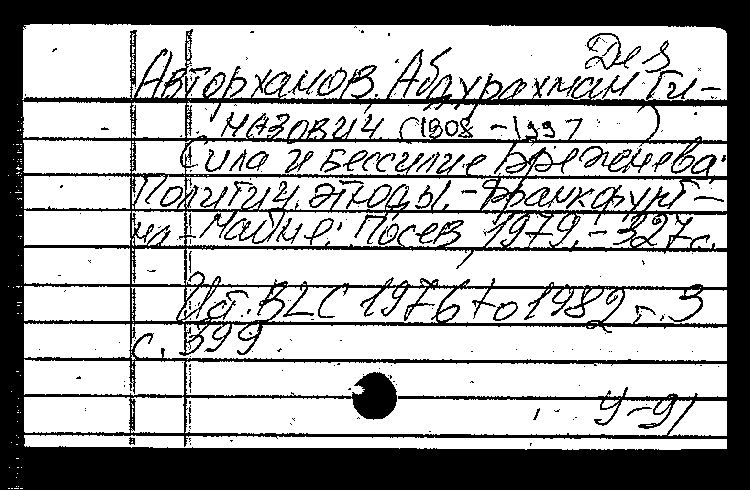 Де 3
Авторханов, Абдурахман Ги-
назович (1908 - 1997)
Сила и бессилие Брежнева:
Политич. этюды. - Франкфурт-
на-Майне: Посев, 1979. - 327 с.
Ист. BLC 1976 to 1982, т. 3
с. 399
У-91